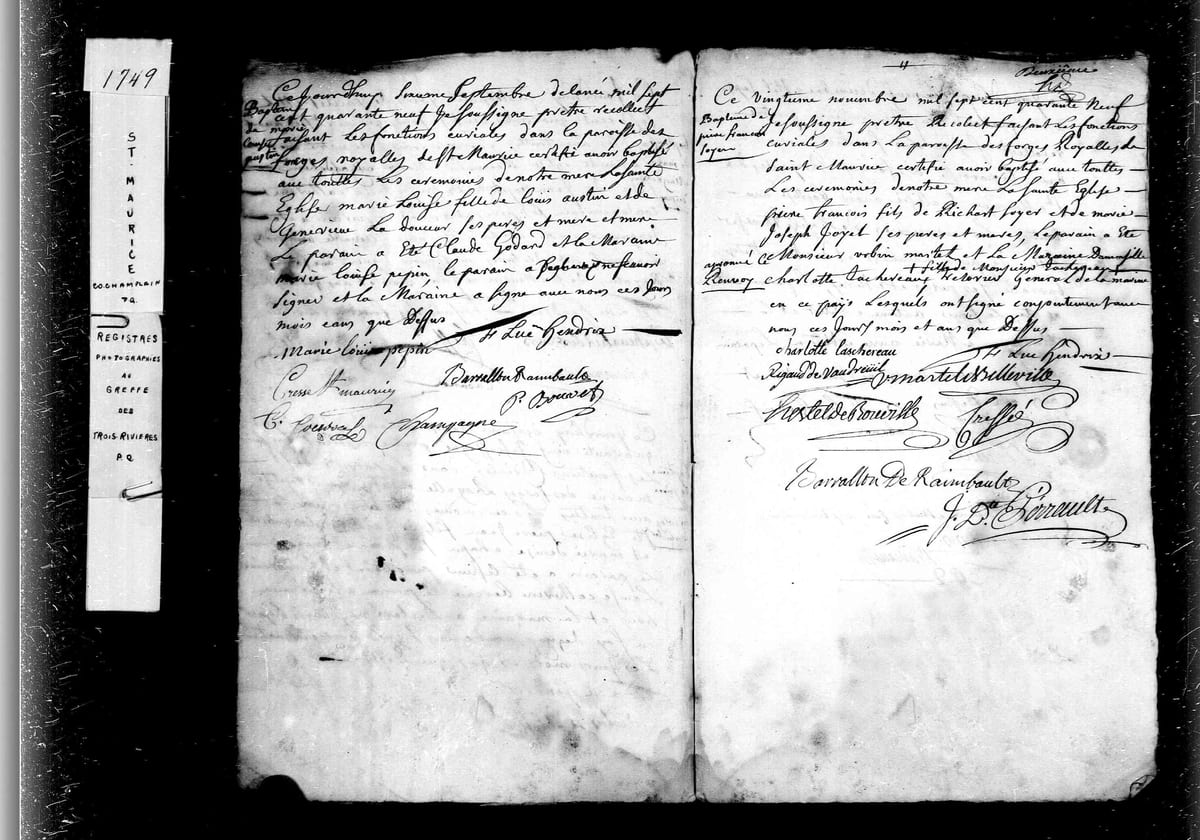 1749
ST. MAURICE.
CO. CHAMPLAIN
P.Q.
REGISTRES
PHOTOGRAPHIES
AU
GREFFE
DES
TROIS-RIVIERES
P.Q.
Bapteme
de marie
Louise
austin
Cejourdhuy Septembre delaneé mil sept
cent quarante neuf Je soussigne pretre recollect
faisant Les fonctions curiales dans la paroisse des
forges royalles de St Maurice certifie avoir baptisé
aux touttes Les ceremonies de notre mere La sainte
Eglise marie Louise fille de Loüis austin et de
Genevieve La douceur ses peres et mere et mere
Le parain a Eté Claude Godard et la Maraine
marie loüise pepin, le parain a ne scavoir
signer et la Maraine a signe avec nous ces Jours
mois eans que Dessus
f Luc Hendrix
Marie loüise pepin
Cresse St maurice
Barrallon Raimbault
P. Bouvet
Champagne
Deuxieme
11
Bapteme de
pierre francois
soyer
Ce vingtieme novembre mil sept cent quarante Neuf
Je soussigne pretre Recolect faisant Les fonctions
curiales dans La parroisse des forges Royalles de
saint Maurice certifie avoir baptisé aux touttes
Les ceremonies de notre mere La sainte Eglise
pierre francois fils de Richart soyer et de marie
Joseph Joyel ses peres et mares, Le parain a Eté
approuvé ce
Renvoy
Monsieur urbin martel et La Maraine Damoiselle
+ fille de Monsieur Tachereau
charlotte tachereau tresorier General de la marine
en ce païs Lesquels ont signé conjointement avec
nous ces Jours mois et ans que Dessus
charlotte taschereau
f Luc Hendrix
Rigaud de Vaudreüil
Vmartel de Belleville
hertel de Rouville
Cressé
Barrallon De Raimbault
J. Dte Perrault